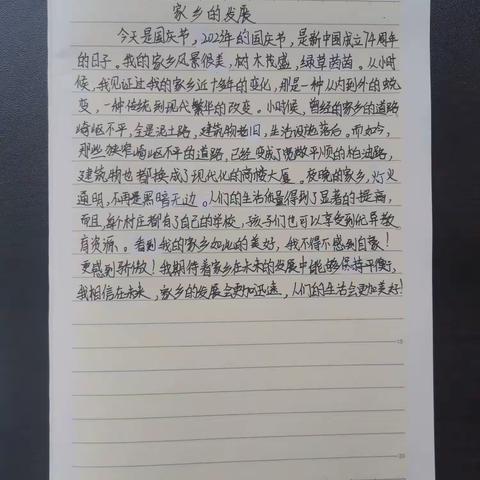 家乡的发展
今天是国庆节，2023年的国庆节，是新中国成立74周年
的日子。我的家乡风景很美，树木茂盛，绿草茵茵。从小时
候，我见证过我的家乡近十多年的变化，那是一种从内到外的蜕
变，一种传统到现代繁华的改变。小时候，曾经的家乡的道路
崎岖不平，全是泥土路，建筑物老旧，生活设施落后。而如今，
那些狭窄崎岖不平的道路，已经变成了宽敞平顺的柏油路，
建筑物也都换成了现代化的高楼大厦。夜晚的家乡，灯火
通明，不再是黑暗无边。人们的生活质量得到了显著的提高，
而且，每个村庄都有了自己的学校，孩子们也可以享受到优异教
育资源。看到我的家乡如此的美好，我不得不感到自豪！
更感到骄傲！我期待着家乡在未来的发展中能够保持平衡，
我相信在未来，家乡的发展会更加迅速，人们的生活会更加美好！
15
20